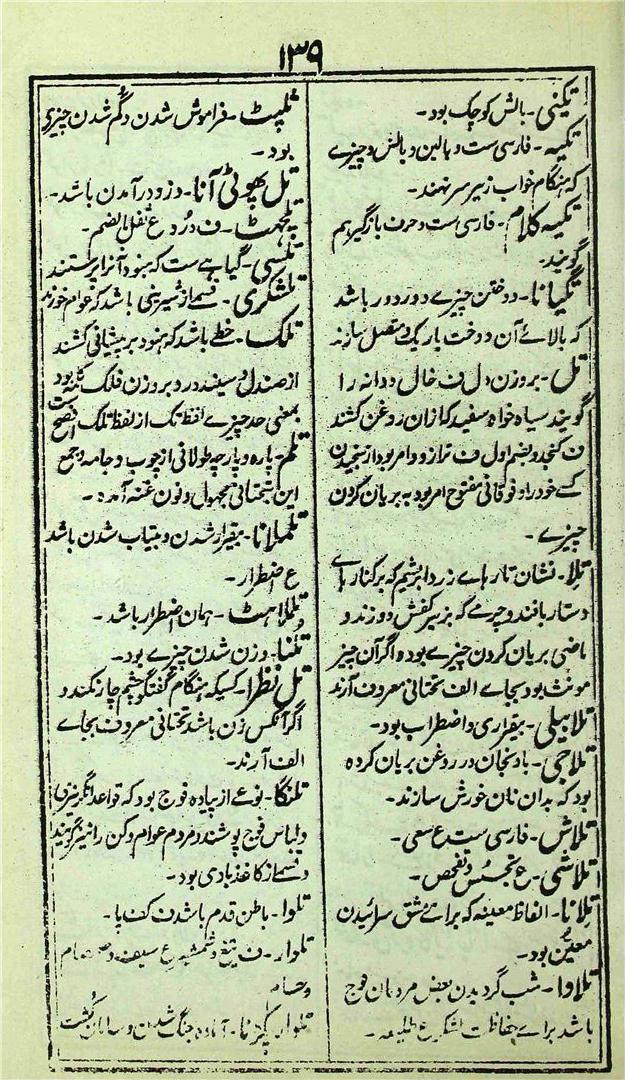 ۱۳۹
تکینی - بالش کوچک بود -
تکیہ - فارسی ست و بالین و بالش و چیزے
کہ ہنگام خواب زیر سر نہند -
تکیہ کلام - فارسی ست و حرف بازگیر ہم
گویند -
تگیانا - دوختن چیزے دور دور باشد
کہ بالائے آن دوخت باریک و متصل سازند
تل - بروزن دل ف خال و دانہ را
گویند سیاہ خواہ سفید کہ ازان روغن کشند
ف کنجد و بضم اول ف ترازو و امر بود از سنجیدن
کسے خود را و فوقانی مفتوح امر بود بہ بریان کردن
چیزے -
تلا - نشان تار ہاے زر و ابریشم کہ بر کنار ہاے
دستار بافند و چرمے کہ بزیر کفش دوزند و
ماضی بریان کردن چیزے بود و اگر آن چیز
مونث بود بجاے الف تحتانی معروف آرند
تلابیلی - بیقراری و اضطراب بود -
تلاجی - بادنجان در روغن بریان کردہ
بود کہ بدان نان خورش سازند -
تلاش - فارسی ست ع سعی -
تلاشی - ع تجسس و تفحص -
تلانا - الفاظ معینہ کہ براے مشق سرائیدن
معین بود -
تلاوا - شب گردیدن بعض مردمان فوج
باشد براے حفاظت لشکر ع طلیعہ -
تلپٹ - فراموش شدن و گم شدن چیزی
بود -
تل پھوٹی آنا - دزد درآمدن باشد -
تلچھٹ - ف دُرد ع ثفل بالضم -
تلسی - گیاہے ست کہ ہنود آنرا پرستند
تلشکری - قسمے از شیرینی باشد کہ عوام خورند
تلک - خطے باشد کہ ہنود بر پیشانی کشند
از صندل و سیندور و بروزن فلک کلمہ بود
بمعنی حد چیزے لفظ تک از لفظ تلک افصح ست
تلم - پارہ و پارچہ طولانی از چوب و جامہ و جمع
این بتحتانی مجہول و نون غنہ آمدہ -
تلملانا - بیقرار شدن و بیتاب شدن باشد
ع اضطرار -
تلملاہٹ - ہمان اضطرار باشد -
تلنا - وزن شدن چیزے بود -
تل نظرا - کسیکہ ہنگام گفتگو چشم چار نکند و
اگر آنکس زن باشد تحتانی معروف بجاے
الف آرند -
تلنگا - نوعے از پیادہ فوج بود کہ قواعد انگریزی
و لباس فوج پوشند و مردم عوام دکن را نیز گویند
و قسمے از کاغذ بادی بود -
تلوا - باطن قدم باشد ن کف پا -
تلوار - ف تیغ و شمشیر ع سیف و صمصام
و حسام
تلوار پکڑنا - آمادہ جنگ شدن و سامان